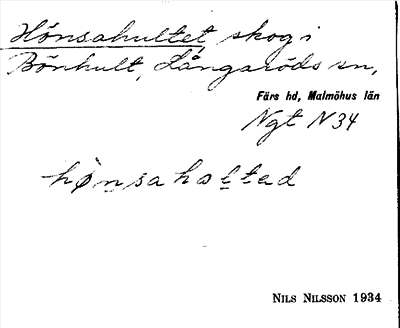 Hönsahultet, skog i
Bönhult, Långaröds sn,
Färs hd, Malmöhus län
Ngt N34
hønsahɷltəd
NILS NILSSON 1934